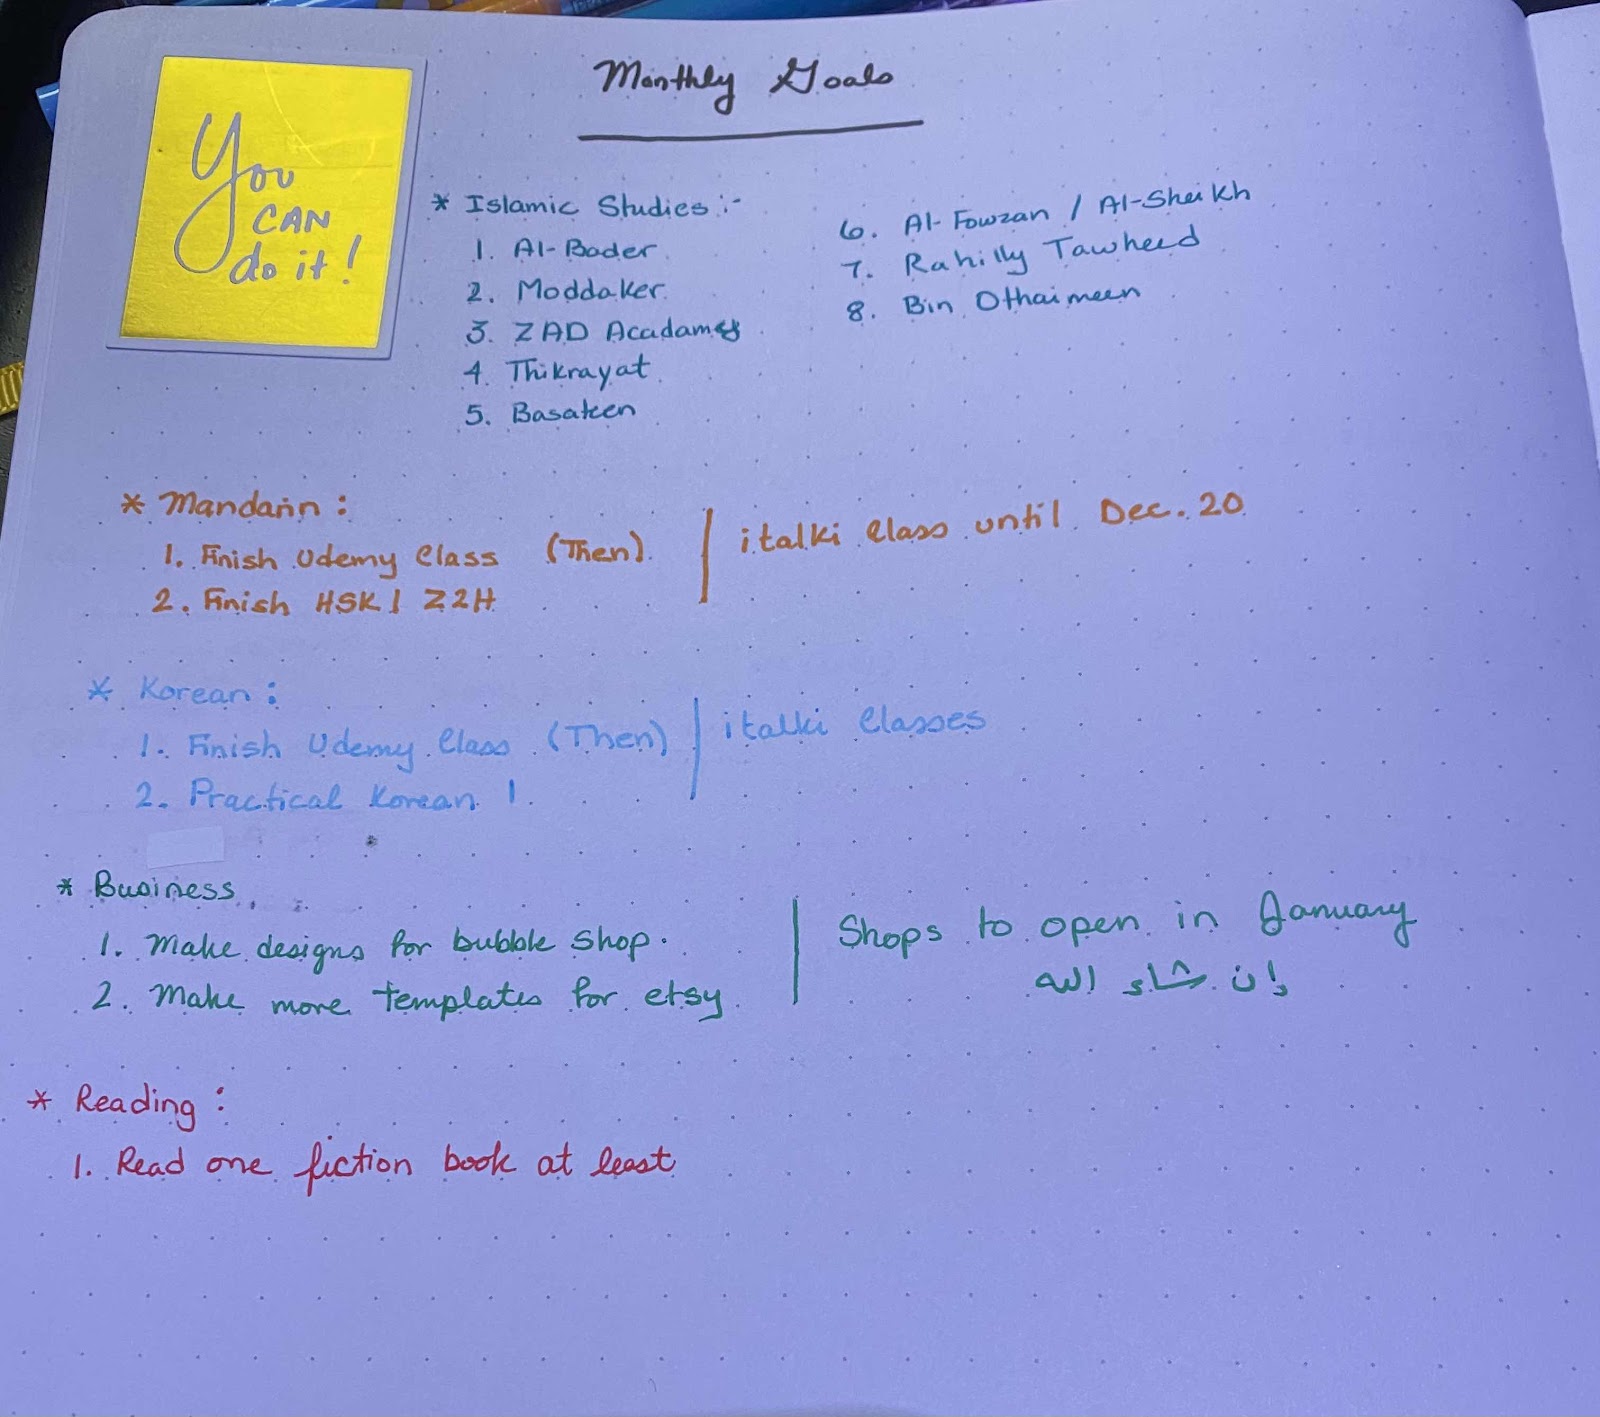 Monthly Goals
You
CAN
do it!
* Islamic Studies :-
1. Al-Bader
2. Moddaker
3. ZAD Acadamy
4. Thikrayat
5. Basateen
6. Al-Fowzan / Al-Sheikh
7. Rahilly Tawheed
8. Bin Othaimeen
* Mandarin :
1. Finish Udemy Class (Then)
2. Finish HSK 1 Z2H
italki Class until Dec. 20
* Korean :
1. Finish Udemy Class (Then)
2. Practical Korean 1.
italki Classes
* Business
1. Make designs for bubble shop.
2. Make more templates for etsy
Shops to open in January
إن شاء الله
* Reading :
1. Read one fiction book at least